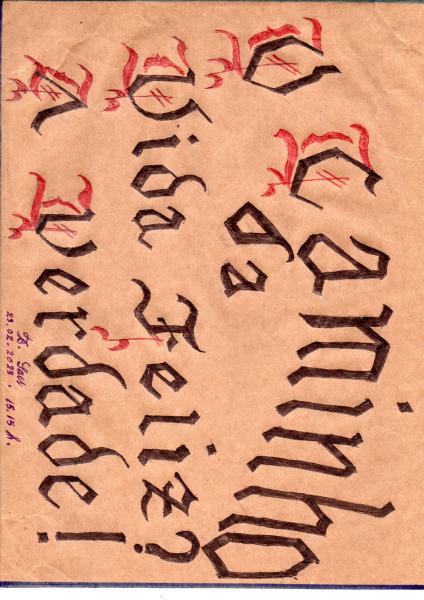 O Caminho
da
Vida Feliz?
A Verdade!
23.02.2023. 15.15 h.